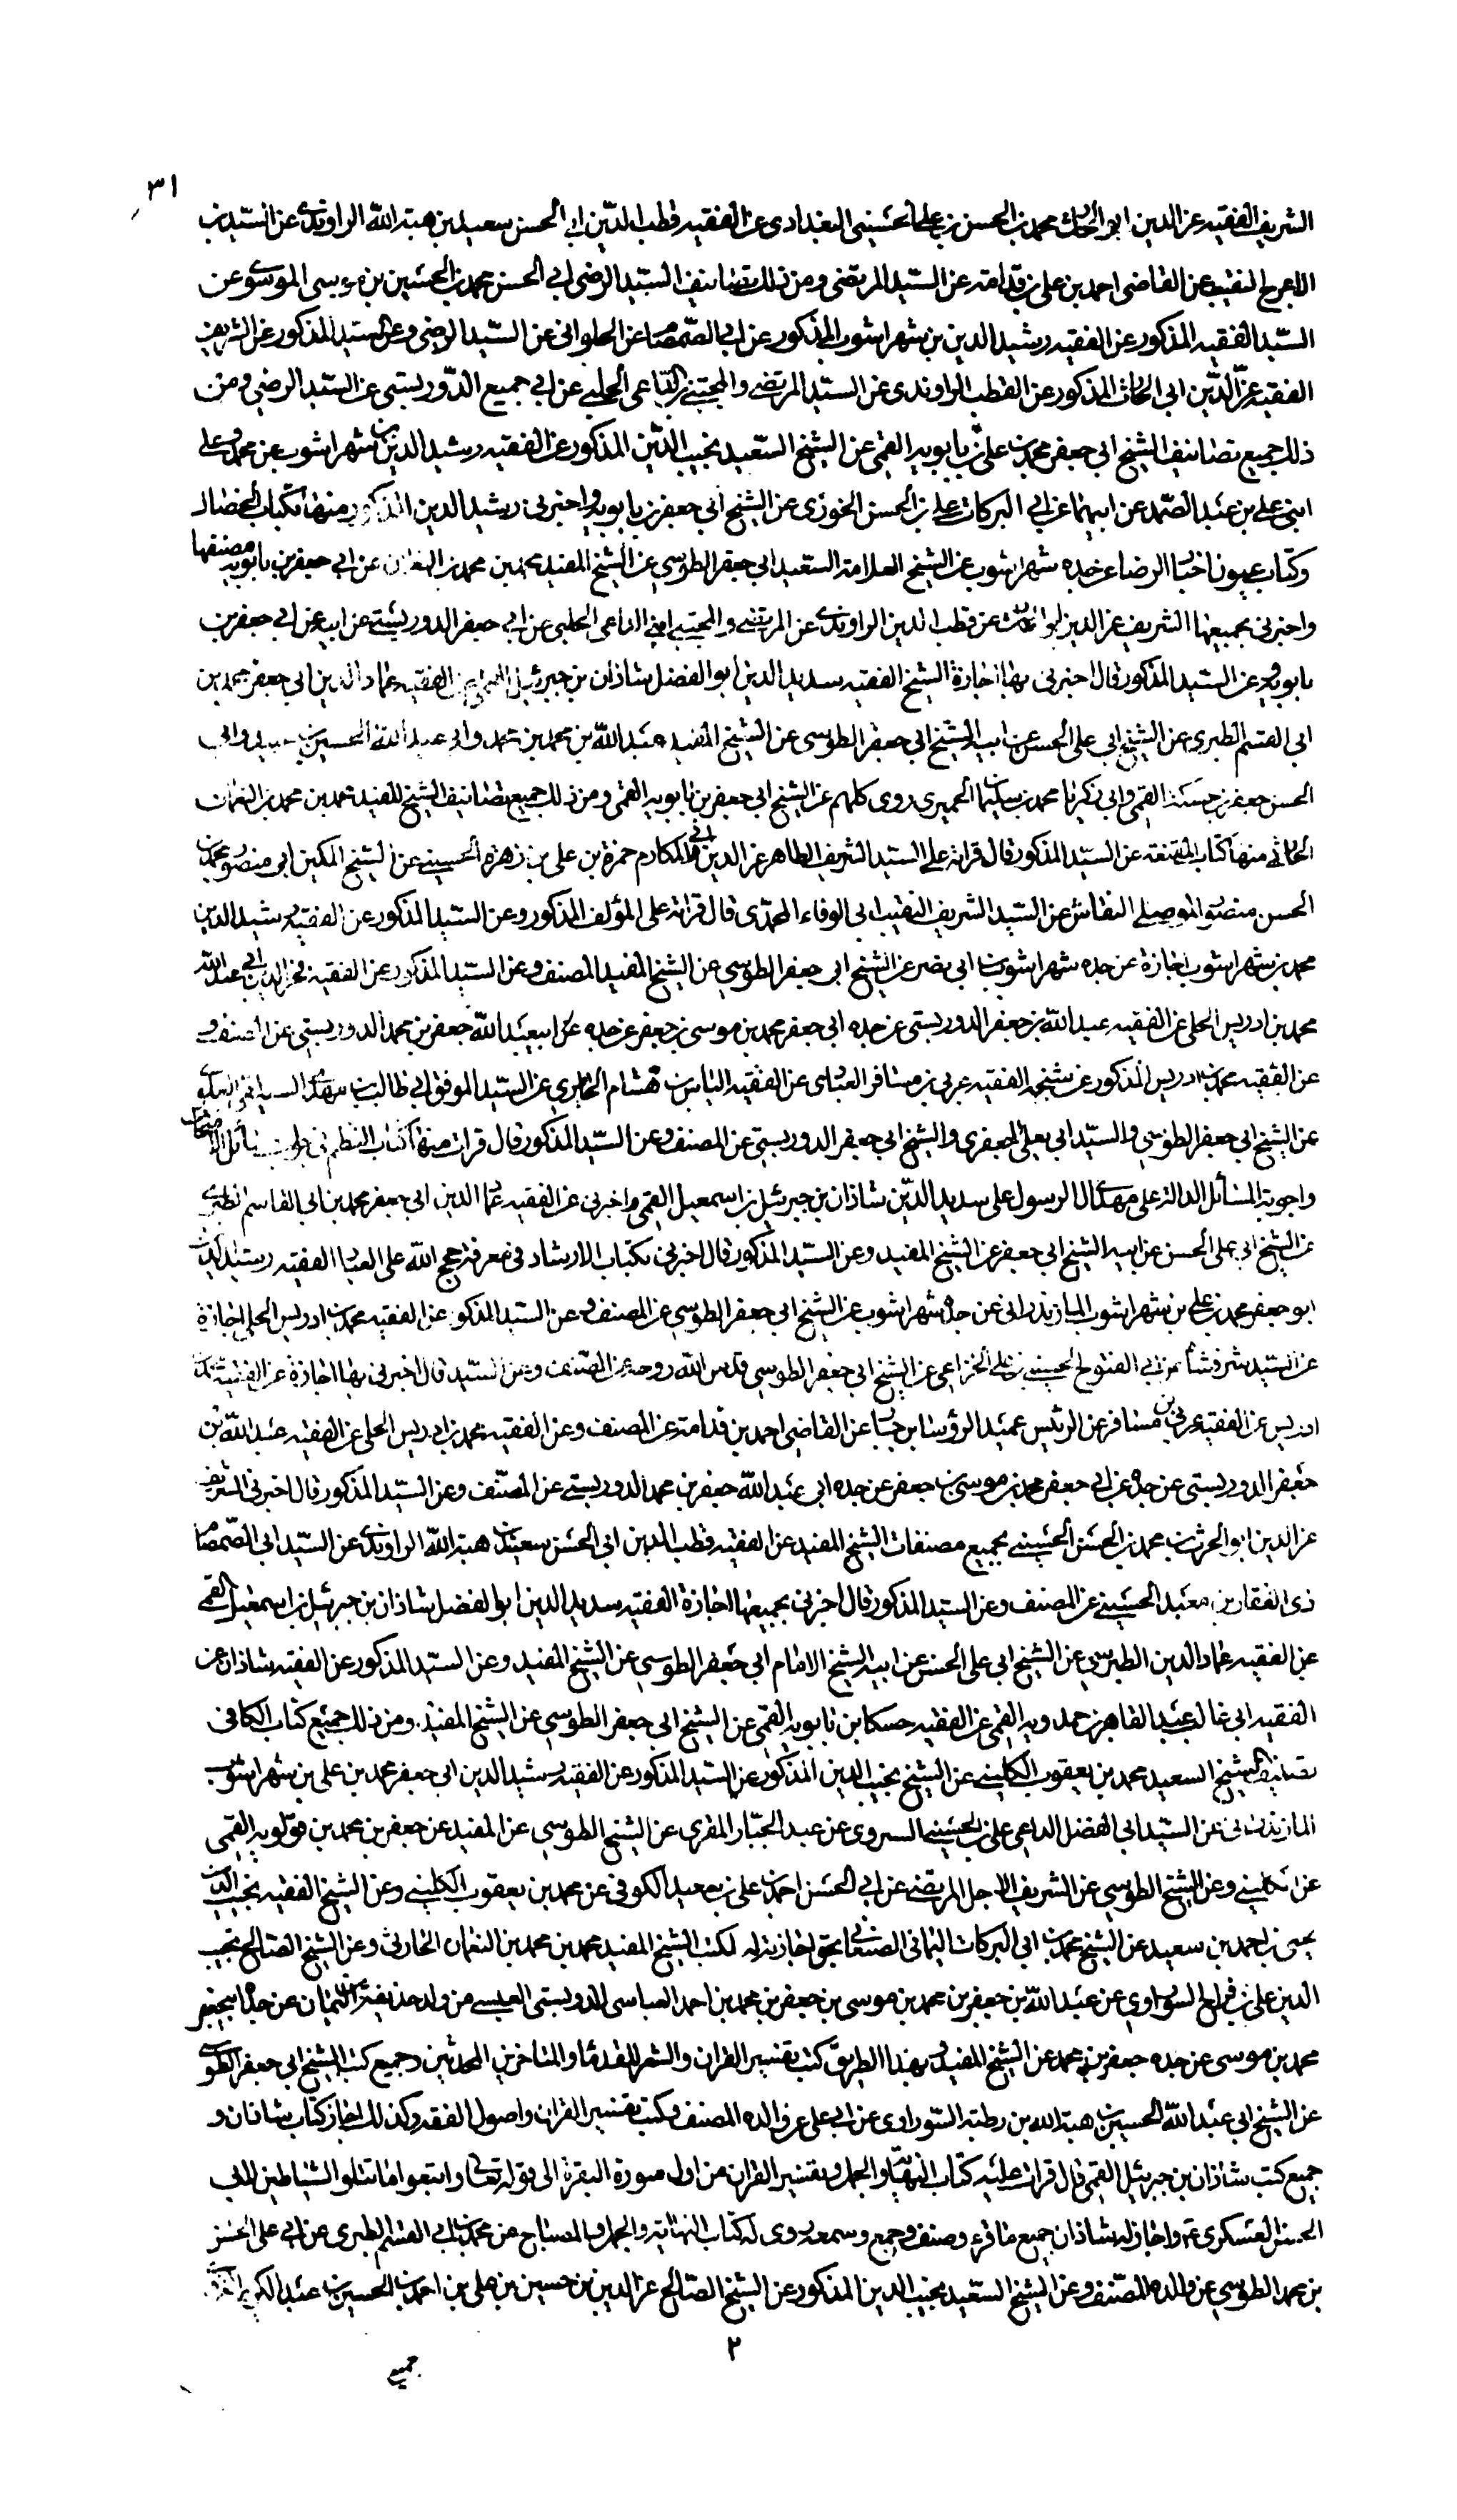 ٣١
الشريف الفقيه عز الدين ابو الحارث محمد بن الحسن بن علي الحسيني البغدادي عن الفقيه قطب الدين ابي الحسن سعيد بن هبة الله الراوندي عن السيد بن
الاعرج النقيب عن القاضي احمد بن علي بن قدامة عن السيد المرتضى ومن ذلك تصانيف السيد الرضي ابي الحسن محمد بن الحسين بن موسى الموسوي عن
السيد الفقيه المذكور عن الفقيه رشيد الدين بن شهراشوب المذكور عن ابي الصمصام عن الحلواني عن السيد الرضي وعن السيد المذكور عن الشريف
الفقيه عز الدين ابي الحارث المذكور عن القطب الراوندي عن السيد المرتضى والمجتبى بن الداعي الحلبي عن ابي جميع الدوريستي عن السيد الرضي ومن
ذلك جميع تصانيف الشيخ ابي جعفر محمد بن علي بن بابويه القمي عن الشيخ السعيد نجيب الدين المذكور عن الفقيه رشيد الدين بن شهراشوب عن محمد وعلي
ابني علي بن عبد الصمد عن ابيهما عن ابي البركات علي بن الحسن الخوزي عن الشيخ ابي جعفر بن بابويه واخبرني رشيد الدين المذكور منها بكتاب الخصال
وكتاب عيون اخبار الرضا عن جده شهراشوب عن الشيخ العلامة السعيد ابي جعفر الطوسي عن الشيخ المفيد محمد بن محمد بن النعمان عن ابي جعفر بن بابويه مصنفها
واخبرني بجميعها الشريف عز الدين ابو الحارث عن قطب الدين الراوندي عن المرتضى والمجتبى ابني الداعي الحلبي عن ابي جعفر الدوريستي عن ابيه عن ابي جعفر بن
بابويه وعن السيد المذكور قال اخبرني بها اجازة الشيخ الفقيه سديد الدين ابو الفضل شاذان بن جبرئيل القمي عن الفقيه عماد الدين ابي جعفر محمد بن
ابي القسم الطبري عن الشيخ ابي علي الحسن عن ابيه الشيخ ابي جعفر الطوسي عن الشيخ المفيد عبد الله بن محمد بن محمد وابي عبد الله الحسين بن عبيد وابي
الحسن جعفر بن حسكة القمي وابي زكريا محمد بن سليمان الحميري روى كلهم عن الشيخ ابي جعفر بن بابويه القمي ومن ذلك جميع تصانيف الشيخ المفيد محمد بن محمد بن النعمان
الحارثي منها كتاب المقنعة عن السيد المذكور قال قرأته على السيد الشريف الطاهر عز الدين ابي المكارم حمزة بن علي بن زهرة الحسيني عن الشيخ المكين ابي منصور محمد بن
الحسن منصور الموصلي النقاش عن السيد الشريف النقيب ابي الوفاء المحمدي قال قراته على المؤلف المذكور وعن السيد المذكور عن الفقيه رشيد الدين
محمد بن شهراشوب اجازة عن جده شهراشوب بن ابي نصر عن الشيخ ابي جعفر الطوسي عن الشيخ المفيد المصنف وعن السيد المذكور عن الفقيه فخر الدين ابي عبد الله
محمد بن ادريس الحلي عن الفقيه عبد الله بن جعفر الدوريستي عن جده ابي جعفر محمد بن موسى بن جعفر عن جده ابي عبد الله جعفر بن محمد الدوريستي عن المصنف و
عن الفقيه محمد بن ادريس المذكور عن شيخه الفقيه عربي بن مسافر العبادي عن الفقيه الياس بن هشام الحايري عن السيد الموفق ابي طالب بن مهدي السليقي العلوي
عن الشيخ ابي جعفر الطوسي والسيد ابي يعلى الجعفري والشيخ ابي جعفر الدوريستي عن المصنف وعن السيد المذكور قال قرات منها كتاب النظم في جواب مسائل الامتحان
واجوبة المسائل الدالة على مهدي ال الرسول على سديد الدين شاذان بن جبرئيل بن اسمعيل القمي واخبرني عن الفقيه عماد الدين ابي جعفر محمد بن ابي القاسم الطبري
عن الشيخ ابي علي الحسن عن ابيه الشيخ ابي جعفر عن الشيخ المفيد وعن السيد المذكور قال اخبرني بكتاب الارشاد في معرفة حجج الله على العباد الفقيه رشيد الدين
ابو جعفر محمد بن علي بن شهراشوب المازندراني عن جده شهراشوب عن الشيخ ابي جعفر الطوسي عن المصنف وعن السيد المذكور عن الفقيه محمد بن ادريس الحلي اجازة
عن السيد شرفشاه عن ابي الفتوح الحسين بن علي الخزاعي عن الشيخ ابي جعفر الطوسي قدس الله روحه عن المصنف وعن السيد قال اخبرني بها اجازة عن الفقيه محمد بن
ادريس عن الفقيه عربي بن مسافر عن الرئيس عميد الرؤسا بن حيا عن القاضي احمد بن قدامة عن المصنف وعن الفقيه محمد بن ادريس الحلي عن الفقيه عبد الله بن
جعفر الدوريستي عن جده عن ابي جعفر محمد بن موسى بن جعفر عن جده ابي عبد الله جعفر بن محمد الدوريستي عن المصنف وعن السيد المذكور قال اخبرني الشريف
عز الدين ابو الحرث بن محمد بن الحسن الحسيني بجميع مصنفات الشيخ المفيد عن الفقيه قطب الدين ابي الحسن سعيد بن هبة الله الراوندي عن السيد ابي الصمصام
ذي الفقار بن معبد الحسيني عن المصنف وعن السيد المذكور قال اخبرني بجميعها اجازة الفقيه سديد الدين ابو الفضل شاذان بن جبرئيل بن اسمعيل القمي
عن الفقيه عماد الدين الطبرسي عن الشيخ ابي علي الحسن عن ابيه الشيخ الامام ابي جعفر الطوسي عن الشيخ المفيد وعن السيد المذكور عن الفقيه شاذان عن
الفقيه ابي غالب عبد القاهر بن حمدويه القمي عن الفقيه حسكا بن بابويه القمي عن الشيخ ابي جعفر الطوسي عن الشيخ المفيد. ومن ذلك جميع كتاب الكافي
تصانيف الشيخ السعيد محمد بن يعقوب الكليني عن الشيخ نجيب الدين المذكور عن السيد المذكور عن الفقيه رشيد الدين ابي جعفر محمد بن علي بن شهراشوب
المازندراني عن السيد ابي الفضل الداعي علي بن الحسيني السروي عن عبد الجبار المقري عن الشيخ الطوسي عن المفيد عن جعفر بن محمد بن قولويه القمي
عن الكليني وعن الشيخ الطوسي عن الشريف الاجل المرتضى عن ابي الحسن احمد بن علي بن سعيد الكوفي عن محمد بن يعقوب الكليني وعن الشيخ الفقيه نجيب الدين
يحيى بن احمد بن سعيد عن الشيخ محمد بن ابي البركات اليماني الصنعاني بحق اجازته له لكتب الشيخ المفيد محمد بن محمد بن النعمان الحارثي وعن الشيخ الصالح نجيب
الدين علي بن فراج السوراوي عن عبد الله بن جعفر بن محمد بن موسى بن جعفر بن محمد بن احمد العباسي الدوريستي العبسي من ولد حذيفة بن اليمان عن جده ابي جعفر
محمد بن موسى عن جده جعفر بن محمد عن الشيخ المفيد وبهذا الطريق كتب تفسير القران والشعر للقدماء والمتاخرين المحدثين وجميع كتب الشيخ ابي جعفر الطوسي
عن الشيخ ابي عبد الله الحسين بن هبة الله بن رطبة السوراوي عن ابي علي عن والده المصنف وكتب تفسير القران واصول الفقه وكذلك اجاز كتاب شاذان و
جميع كتب شاذان بن جبرئيل القمي قال قرات عليه كتاب النهاية والجمل وتفسير القران من اول سورة البقرة الى قوله تعالى واتبعوا ما تتلوا الشياطين لابي
الحسن العسكري ع واجاز له شاذان جميع ما قرء وصنف وجمع وسمعه وروى له كتاب النهاية والجمل والمصباح عن محمد بن ابي القسم الطبري عن ابي علي الحسن
بن محمد الطوسي عن والده المصنف وعن الشيخ السعيد نجيب الدين المذكور عن الشيخ الصالح عز الدين بن حسين بن علي بن احمد بن الحسين بن عبد الكريم
٢
جميع